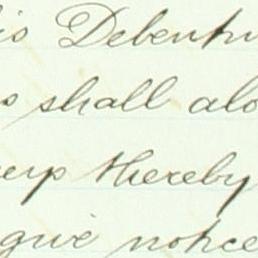 is Debentu
s shall alo
thereby
give notice